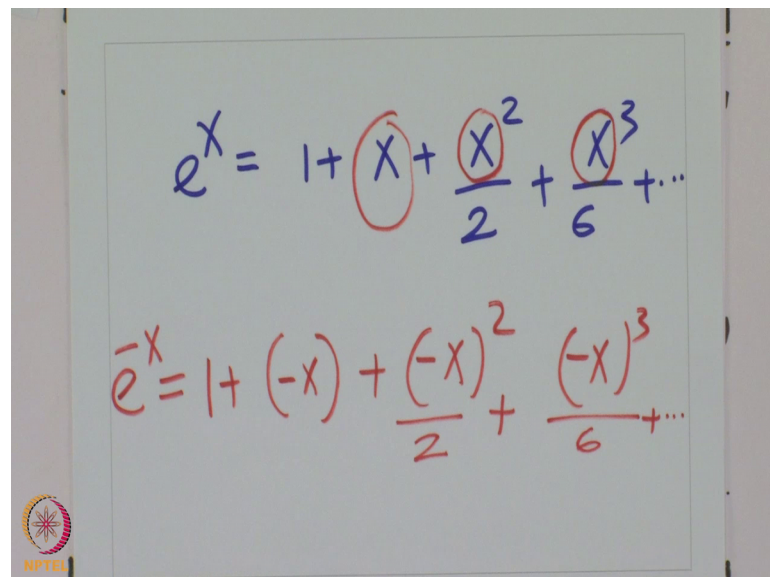 e^x = 1 + x + x^2/2 + x^3/6 + ...
e^-x = 1 + (-x) + (-x)^2/2 + (-x)^3/6 + ...
NPTEL